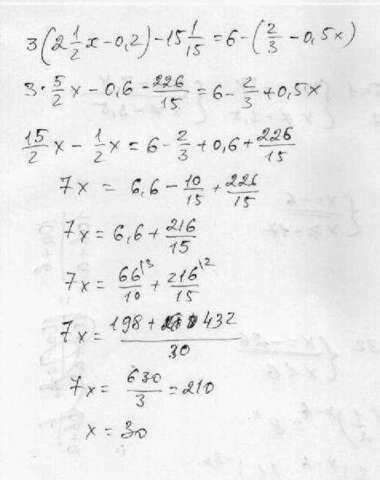 3(2 1/2 x - 0,2) - 15 1/15 = 6 - (2/3 - 0,5x)
3 · 5/2 x - 0,6 - 226/15 = 6 - 2/3 + 0,5x
15/2 x - 1/2 x = 6 - 2/3 + 0,6 + 226/15
7x = 6,6 - 10/15 + 226/15
7x = 6,6 + 216/15
7x = 66/10 |3 + 216/15 |2
7x = 198 + 432 / 30
7x = 630/3 = 210
x = 30